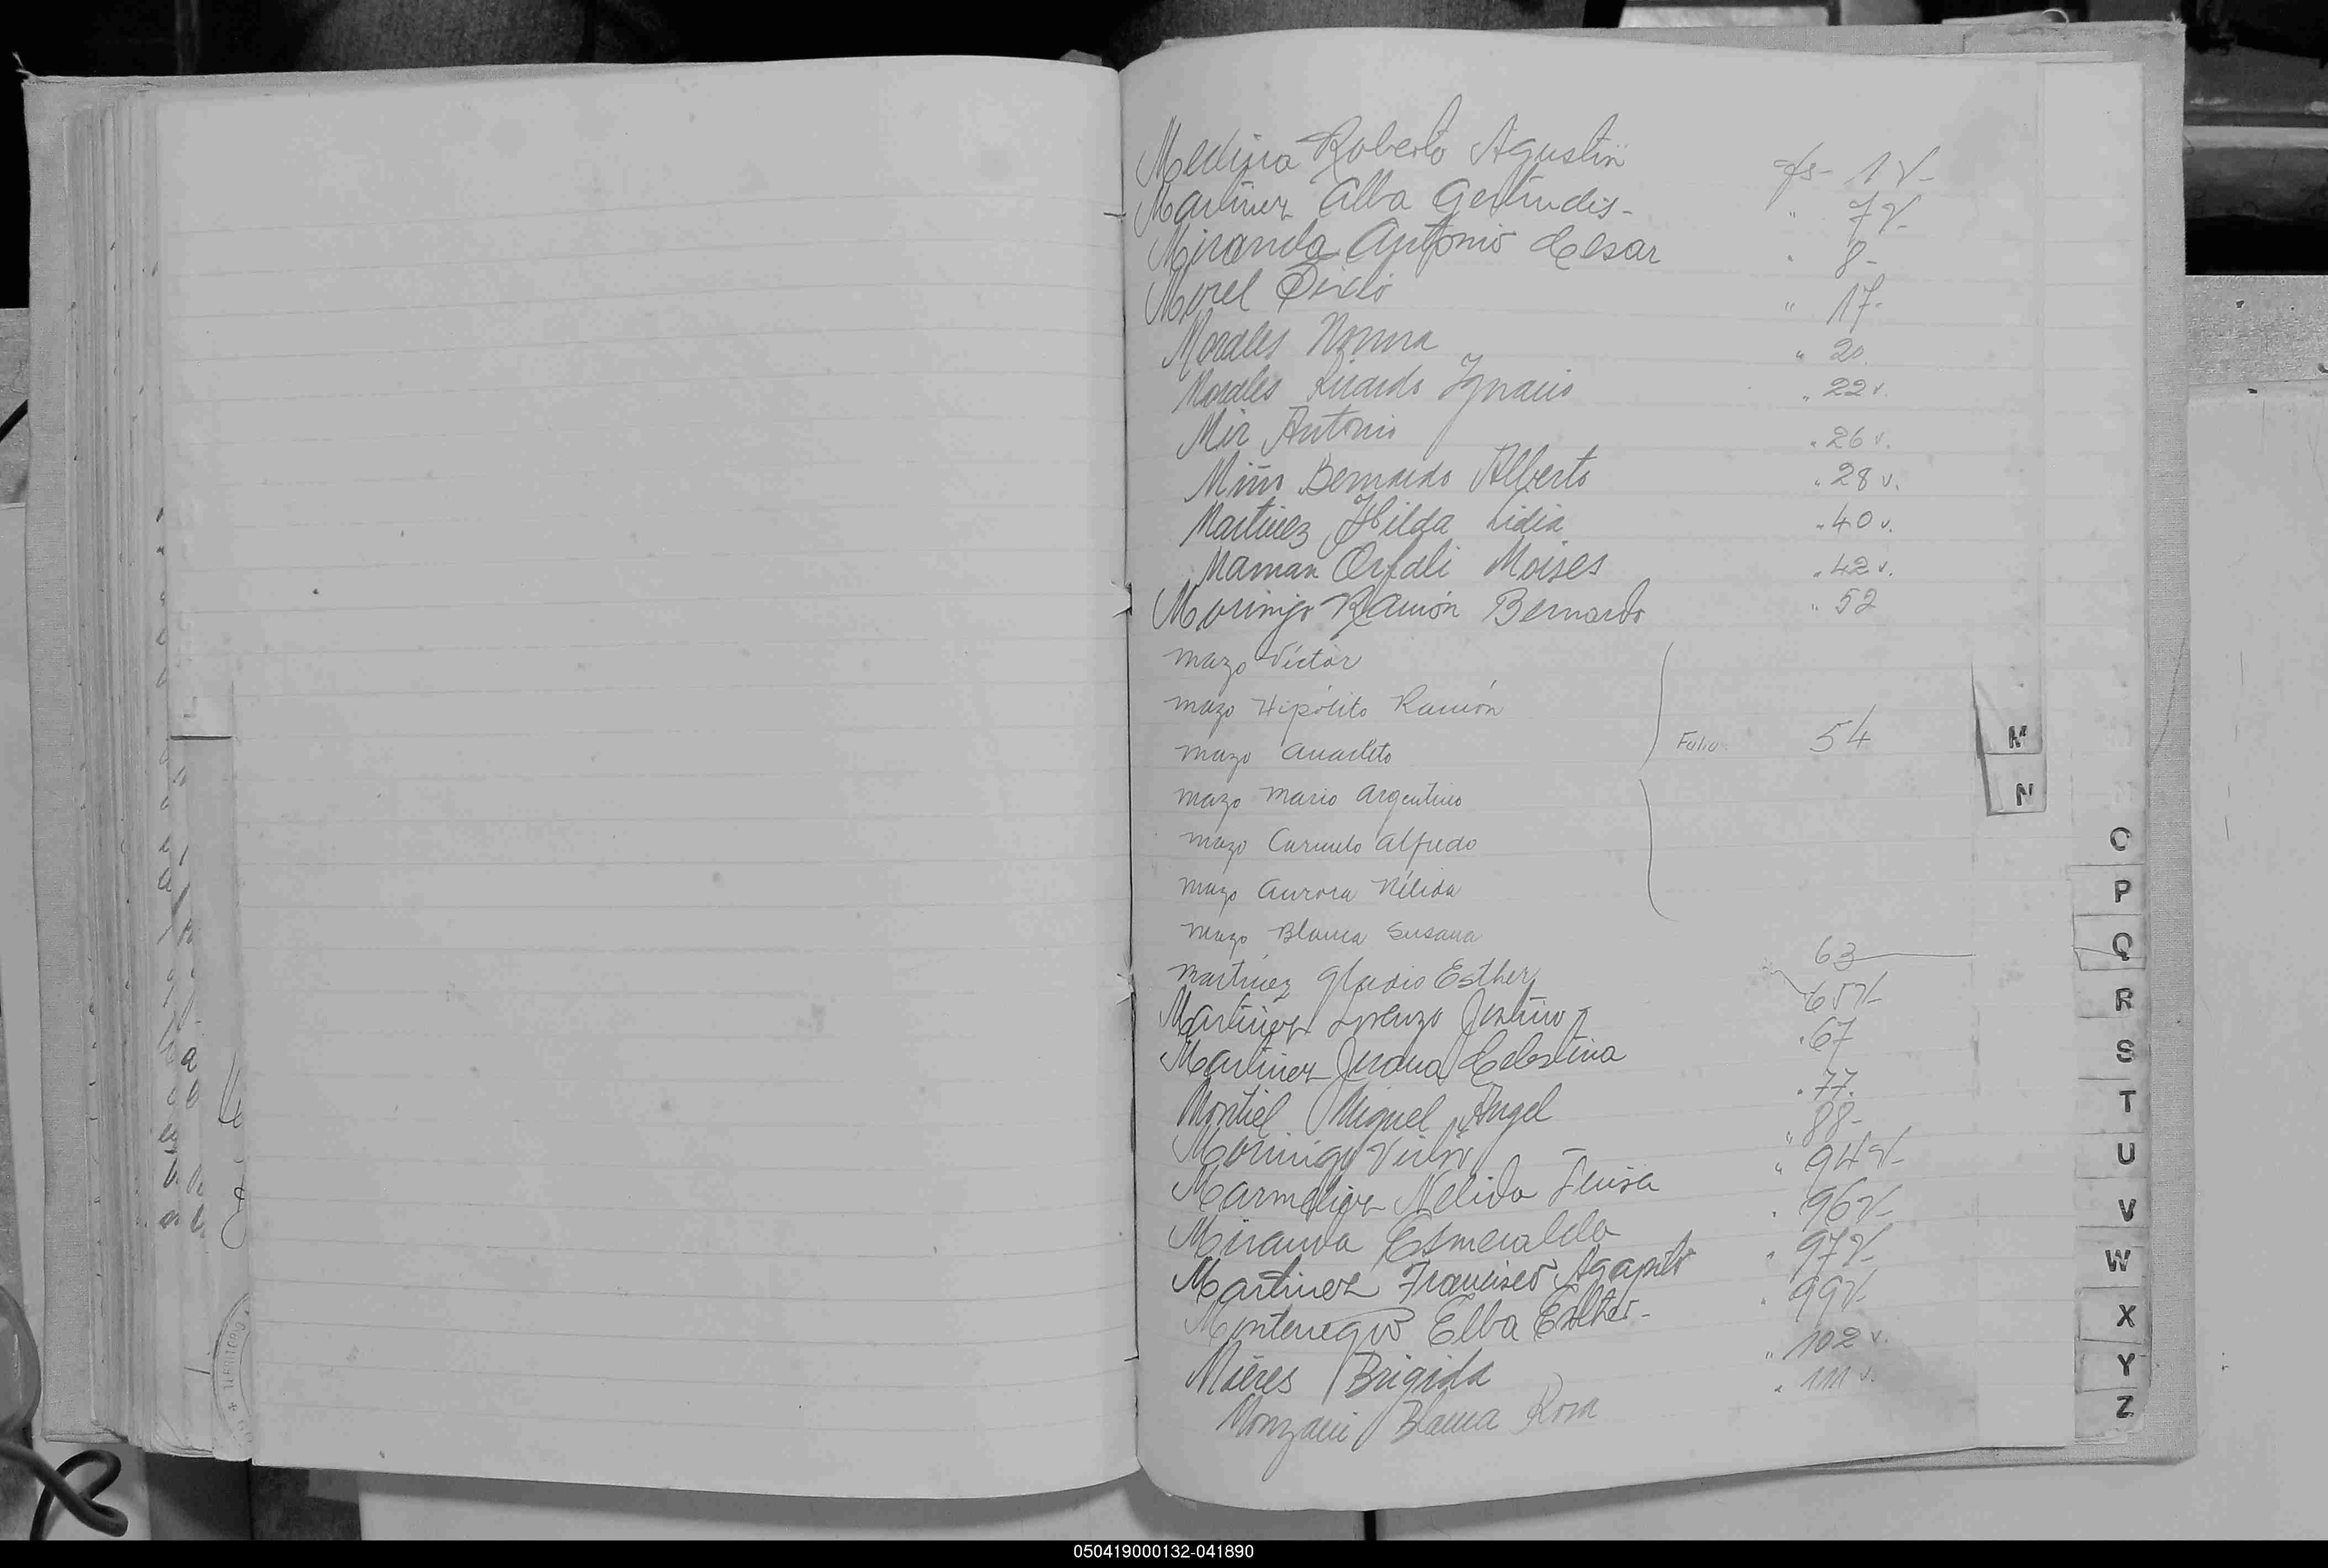 Medina Roberto Agustin fs- 1 v-
Martinez Alba Gertrudis- " 7 v-
Miranda Antonio Cesar " 8-
Morel " 17-
Morales Norma " 20
Morales Ricardo Ignacio " 22 v.
Mir Antonio " 26 v.
Miño Bernardo Alberto " 28 v.
Martinez Hilda Lidia " 40 v.
Maman Orfali Moises " 42 v.
Morinigo Ramón Bernardo " 52
mazo Víctor
mazo Hipólito Ramón
mazo Anacleto Folio 54
mazo mario argentino
mazo Carmelo alfredo
mazo Aurora Nélida
mazo Blanca Susana
martinez Gladis Esther 63
Martinez Lorenzo Justino 65 v-
Martinez Juana Celestina " 67
Montiel Miguel Angel " 77.
Morinigo " 88-
Nelida Luisa " 94 v-
Miranda Esmeralda " 96 v-
Martinez Francisco Agapito " 97 v-
Montenegro Elba Esther- " 99 v-
Mieres Brigida " 102 v.
Monzani Blanca Rosa " 111 v.
M
N
O
P
Q
R
S
T
U
V
W
X
Y
Z
050419000132-041890